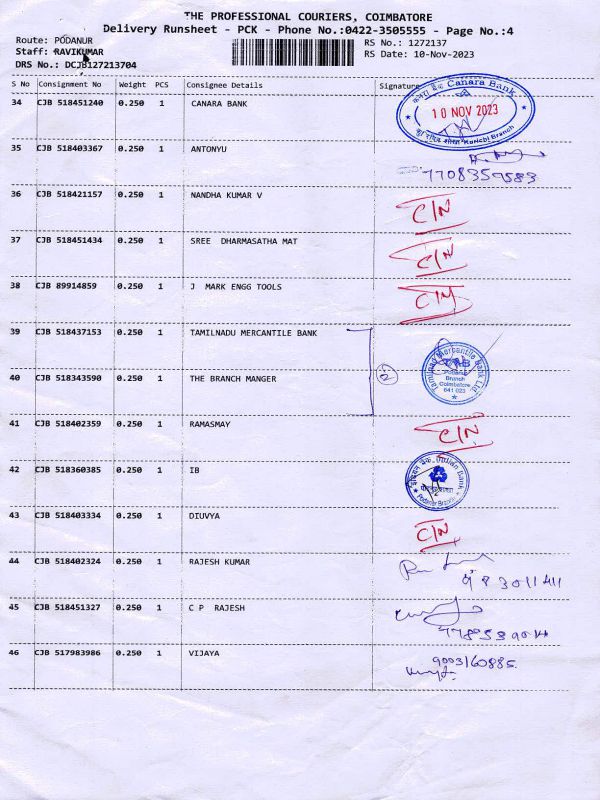 THE PROFESSIONAL COURIERS, COIMBATORE
Delivery Runsheet - PCK - Phone No.:0422-3505555 - Page No.:4
Route: PODANUR RS No.: 1272137
Staff: RAVIKUMAR RS Date: 10-Nov-2023
DRS No.: DCJB127213704
S No Consignment No Weight PCS Consignee Details Signature
34 CJB 518451240 0.250 1 CANARA BANK
केनरा बैंक Canara Bank
10 NOV 2023
Kurichi Branch
35 CJB 518403367 0.250 1 ANTONYU
7708359583
36 CJB 518421157 0.250 1 NANDHA KUMAR V C/N
37 CJB 518451434 0.250 1 SREE DHARMASATHA MAT C/N
38 CJB 89914859 0.250 1 J MARK ENGG TOOLS C/N
39 CJB 518437153 0.250 1 TAMILNADU MERCANTILE BANK
Tamilnad Mercantile Bank Ltd.
Podanur
Branch
Coimbatore
641 023
40 CJB 518343590 0.250 1 THE BRANCH MANGER
41 CJB 518402359 0.250 1 RAMASMAY C/N
42 CJB 518360385 0.250 1 IB
इंडियन बैंक Indian Bank
Podanur Branch
43 CJB 518403334 0.250 1 DIUVYA C/N
44 CJB 518402324 0.250 1 RAJESH KUMAR
45 CJB 518451327 0.250 1 C P RAJESH
46 CJB 517983986 0.250 1 VIJAYA 9003160885.